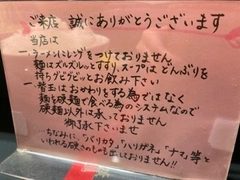 ご来店 誠にありがとうございます
当店は
一 ラーメンにレンゲをつけておりません
麺はズルズルッとすすり、スープはどんぶりを
持ちグビグビッとお飲み下さい
一 替玉はおかわりをする為ではなく
麺を硬麺で食べる為のシステムなので
硬麺以外は承っておりません
御了承下さいませ
ちなみに、「バリカタ」「ハリガネ」「ナマ」等と
いわれる硬さのしゅも出しておりません!!